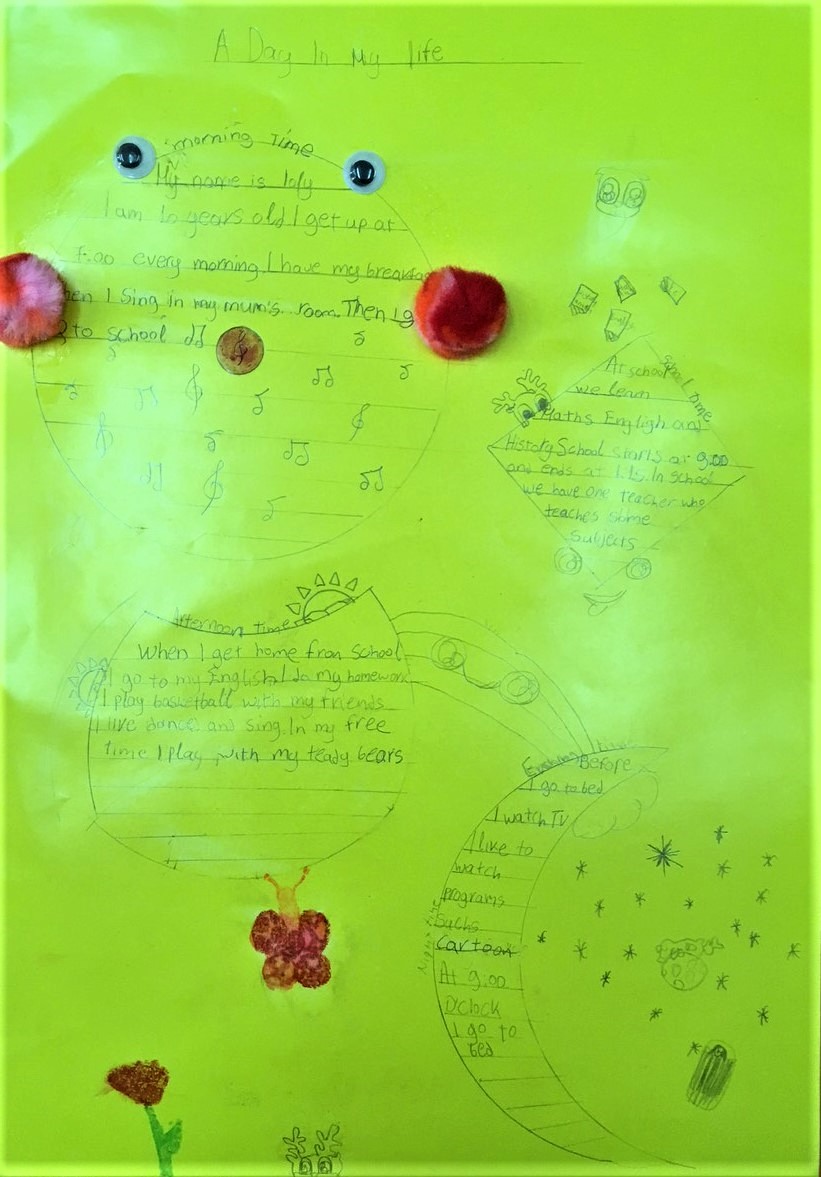 A Day In My life
morning Time
My name is loly
I am 10 years old I get up at
7.00 every morning I have my breakfas
hen I Sing in my mum's room. Then I g
to school
At school
we learn
Maths English and
History School starts at 9.00
and ends at 1.15. In School
we have one teacher who
teaches some
Subjects
School Time
Afternoon Time
When I get home from School
I go to my English I do my homework
I play basketball with my friends
I live dance and sing. In my free
time I play with my teady bears
Evening
Before
I go to bed
I watch TV
I like to
watch
programs
Suchs
Cartoon
At 9.00
O'clock
I go to
bed
Night Time